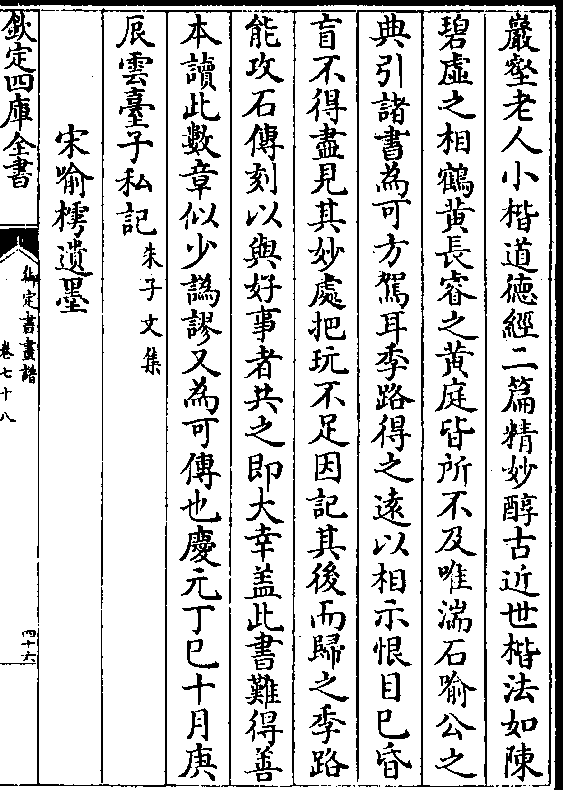 巖壑老人小楷道德經二篇精妙醇古近世楷法如陳
碧虛之相鶴黄長睿之黄庭皆所不及唯湍石喻公之
典引諸書為可方駕耳季路得之逺以相示恨目已昏
盲不得盡見其妙處把玩不足因記其後而歸之季路
能攻石傳刻以與好事者共之即大幸盖此書難得善
本讀此數章似少譌謬又為可傳也慶元丁巳十月庚
辰雲臺子私記 朱子文集
宋喻樗遺墨
欽定四庫全書 御定書畫譜 卷七十八 四十六